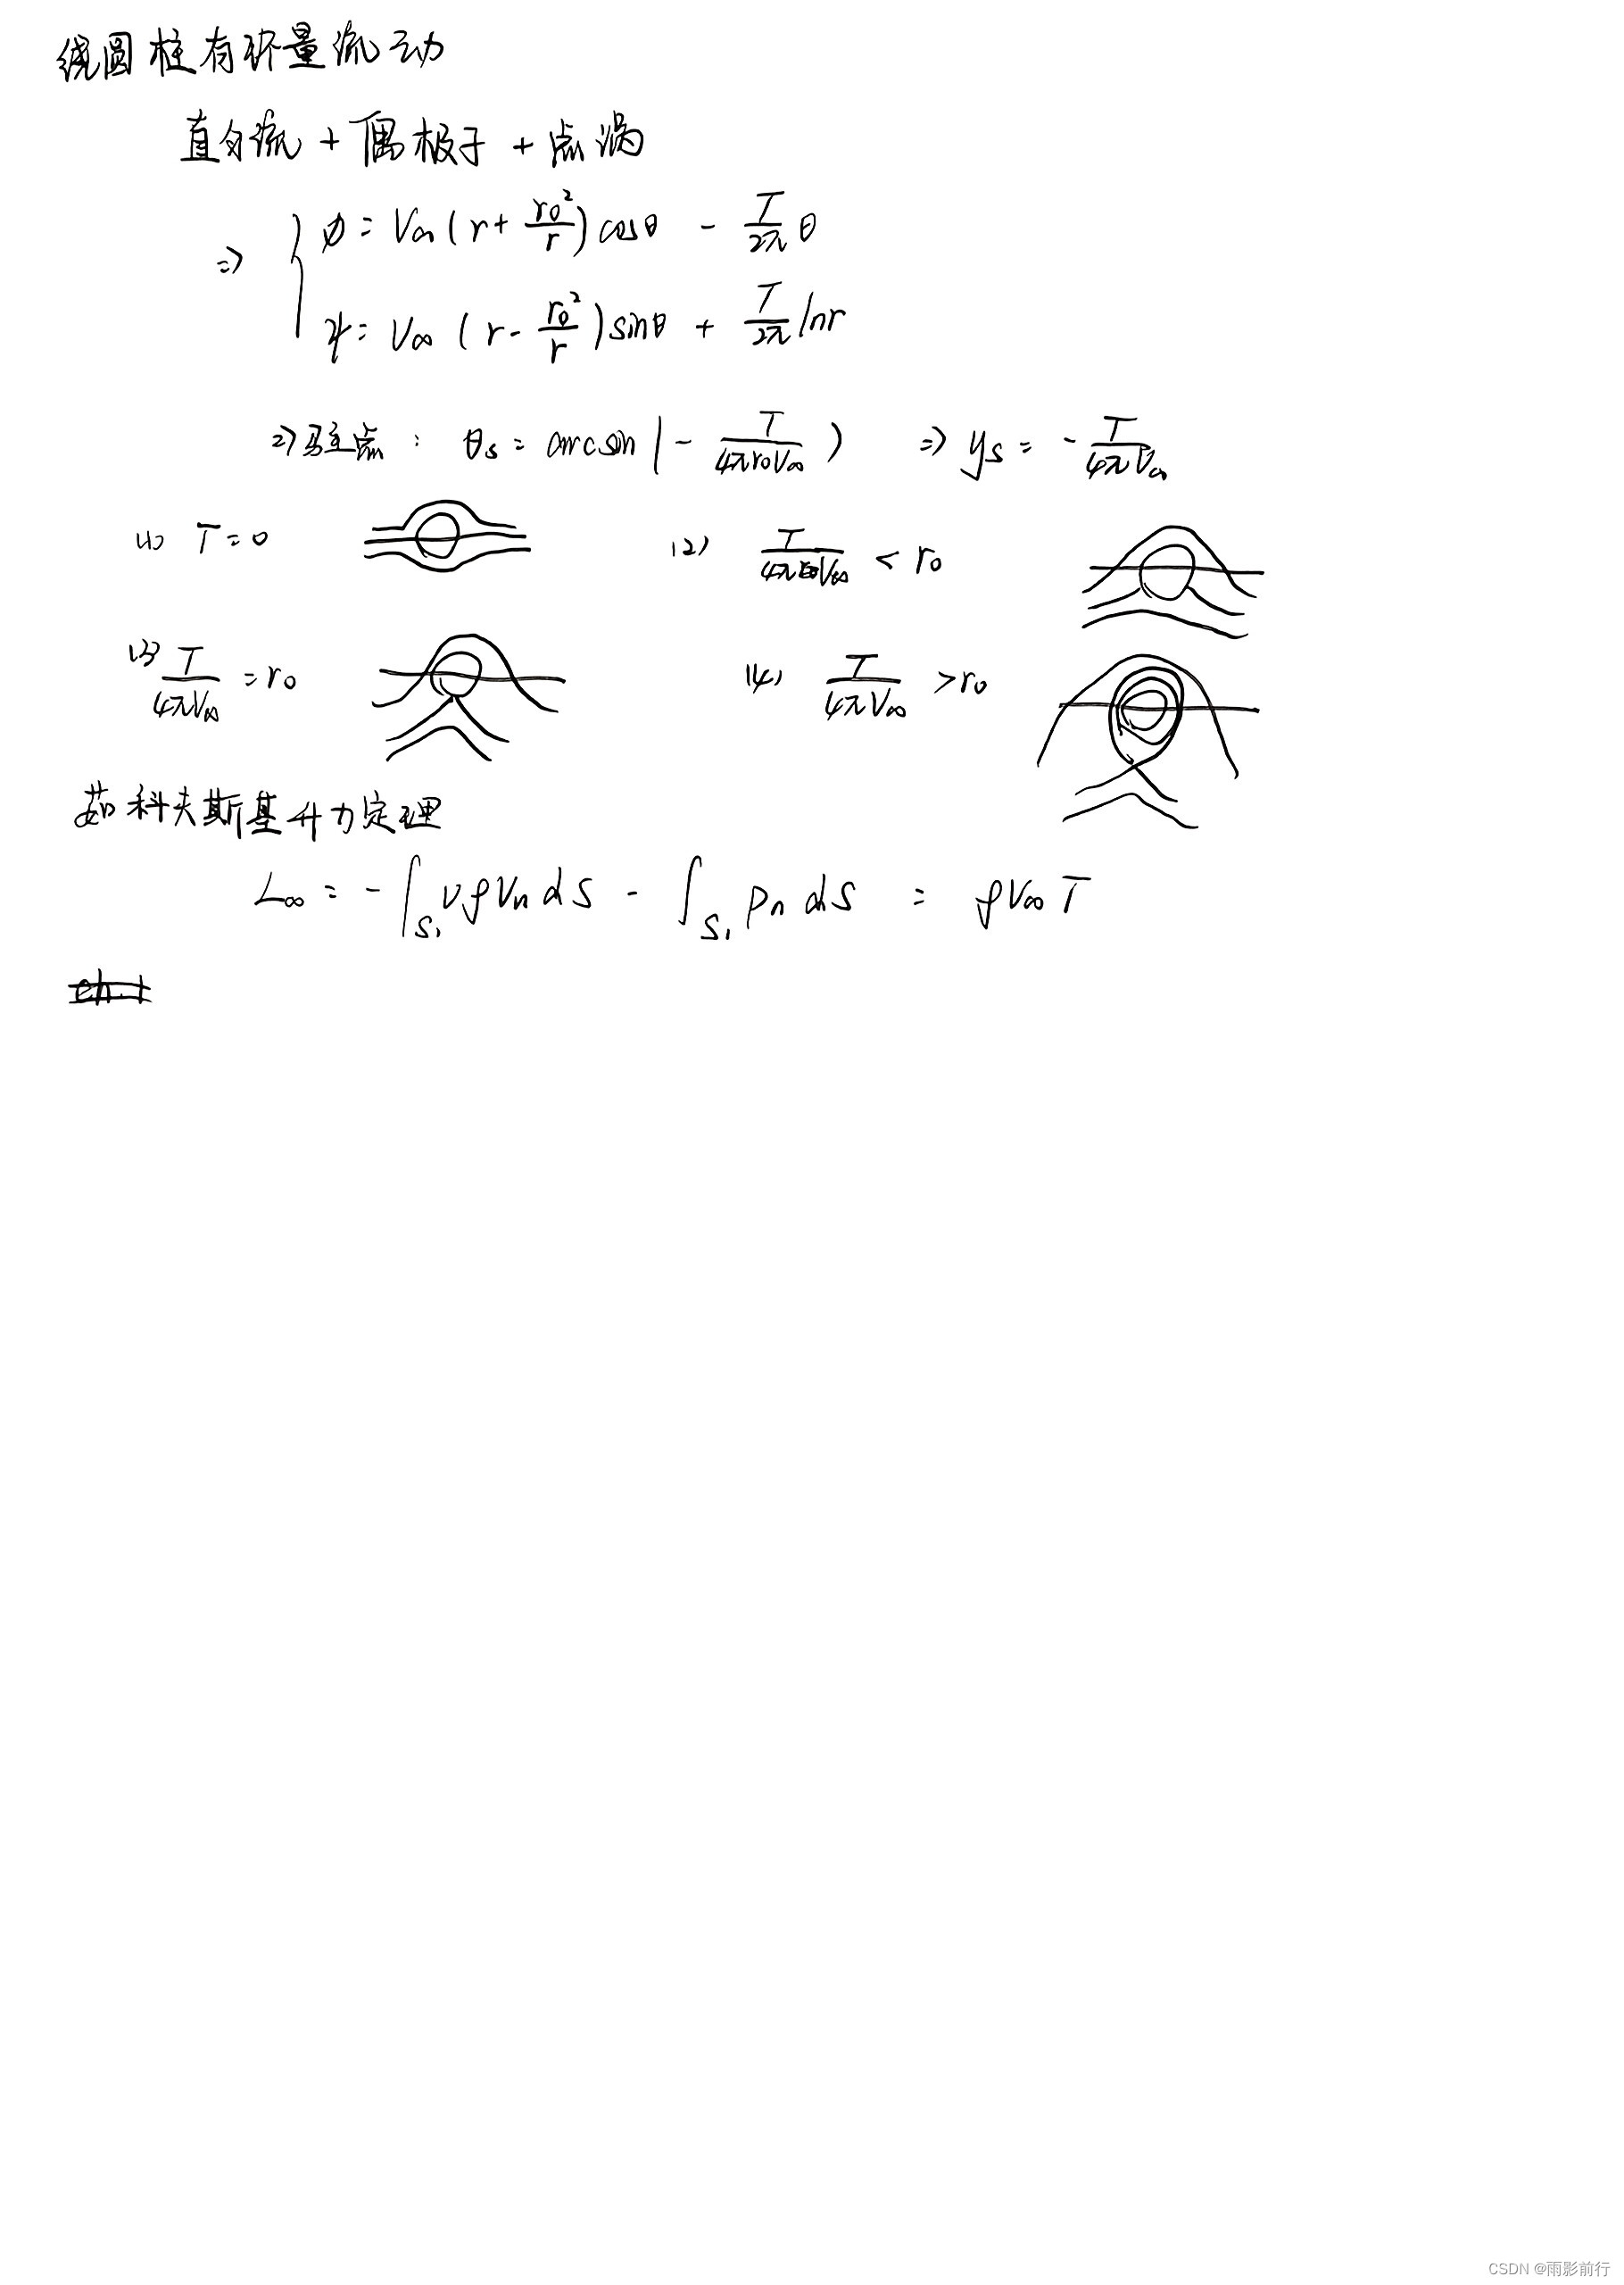 绕圆柱有环量流动
直匀流 + 偶极子 + 点涡
⇒ { φ = V∞ (r + r₀²/r) cosθ - T/2π θ
ψ = V∞ (r - r₀²/r) sinθ + T/2π lnr
⇒ 驻点 : θs = arcsin (- T/4πr₀V∞) ⇒ ys = - T/4πV∞
(1) T = 0 (2) T/4πV∞ < r₀
(3) T/4πV∞ = r₀ (4) T/4πV∞ > r₀
茹科夫斯基升力定理
L∞ = - ∫S₁ VρVn dS - ∫S₁ pn dS = ρV∞T
CSDN @雨影前行